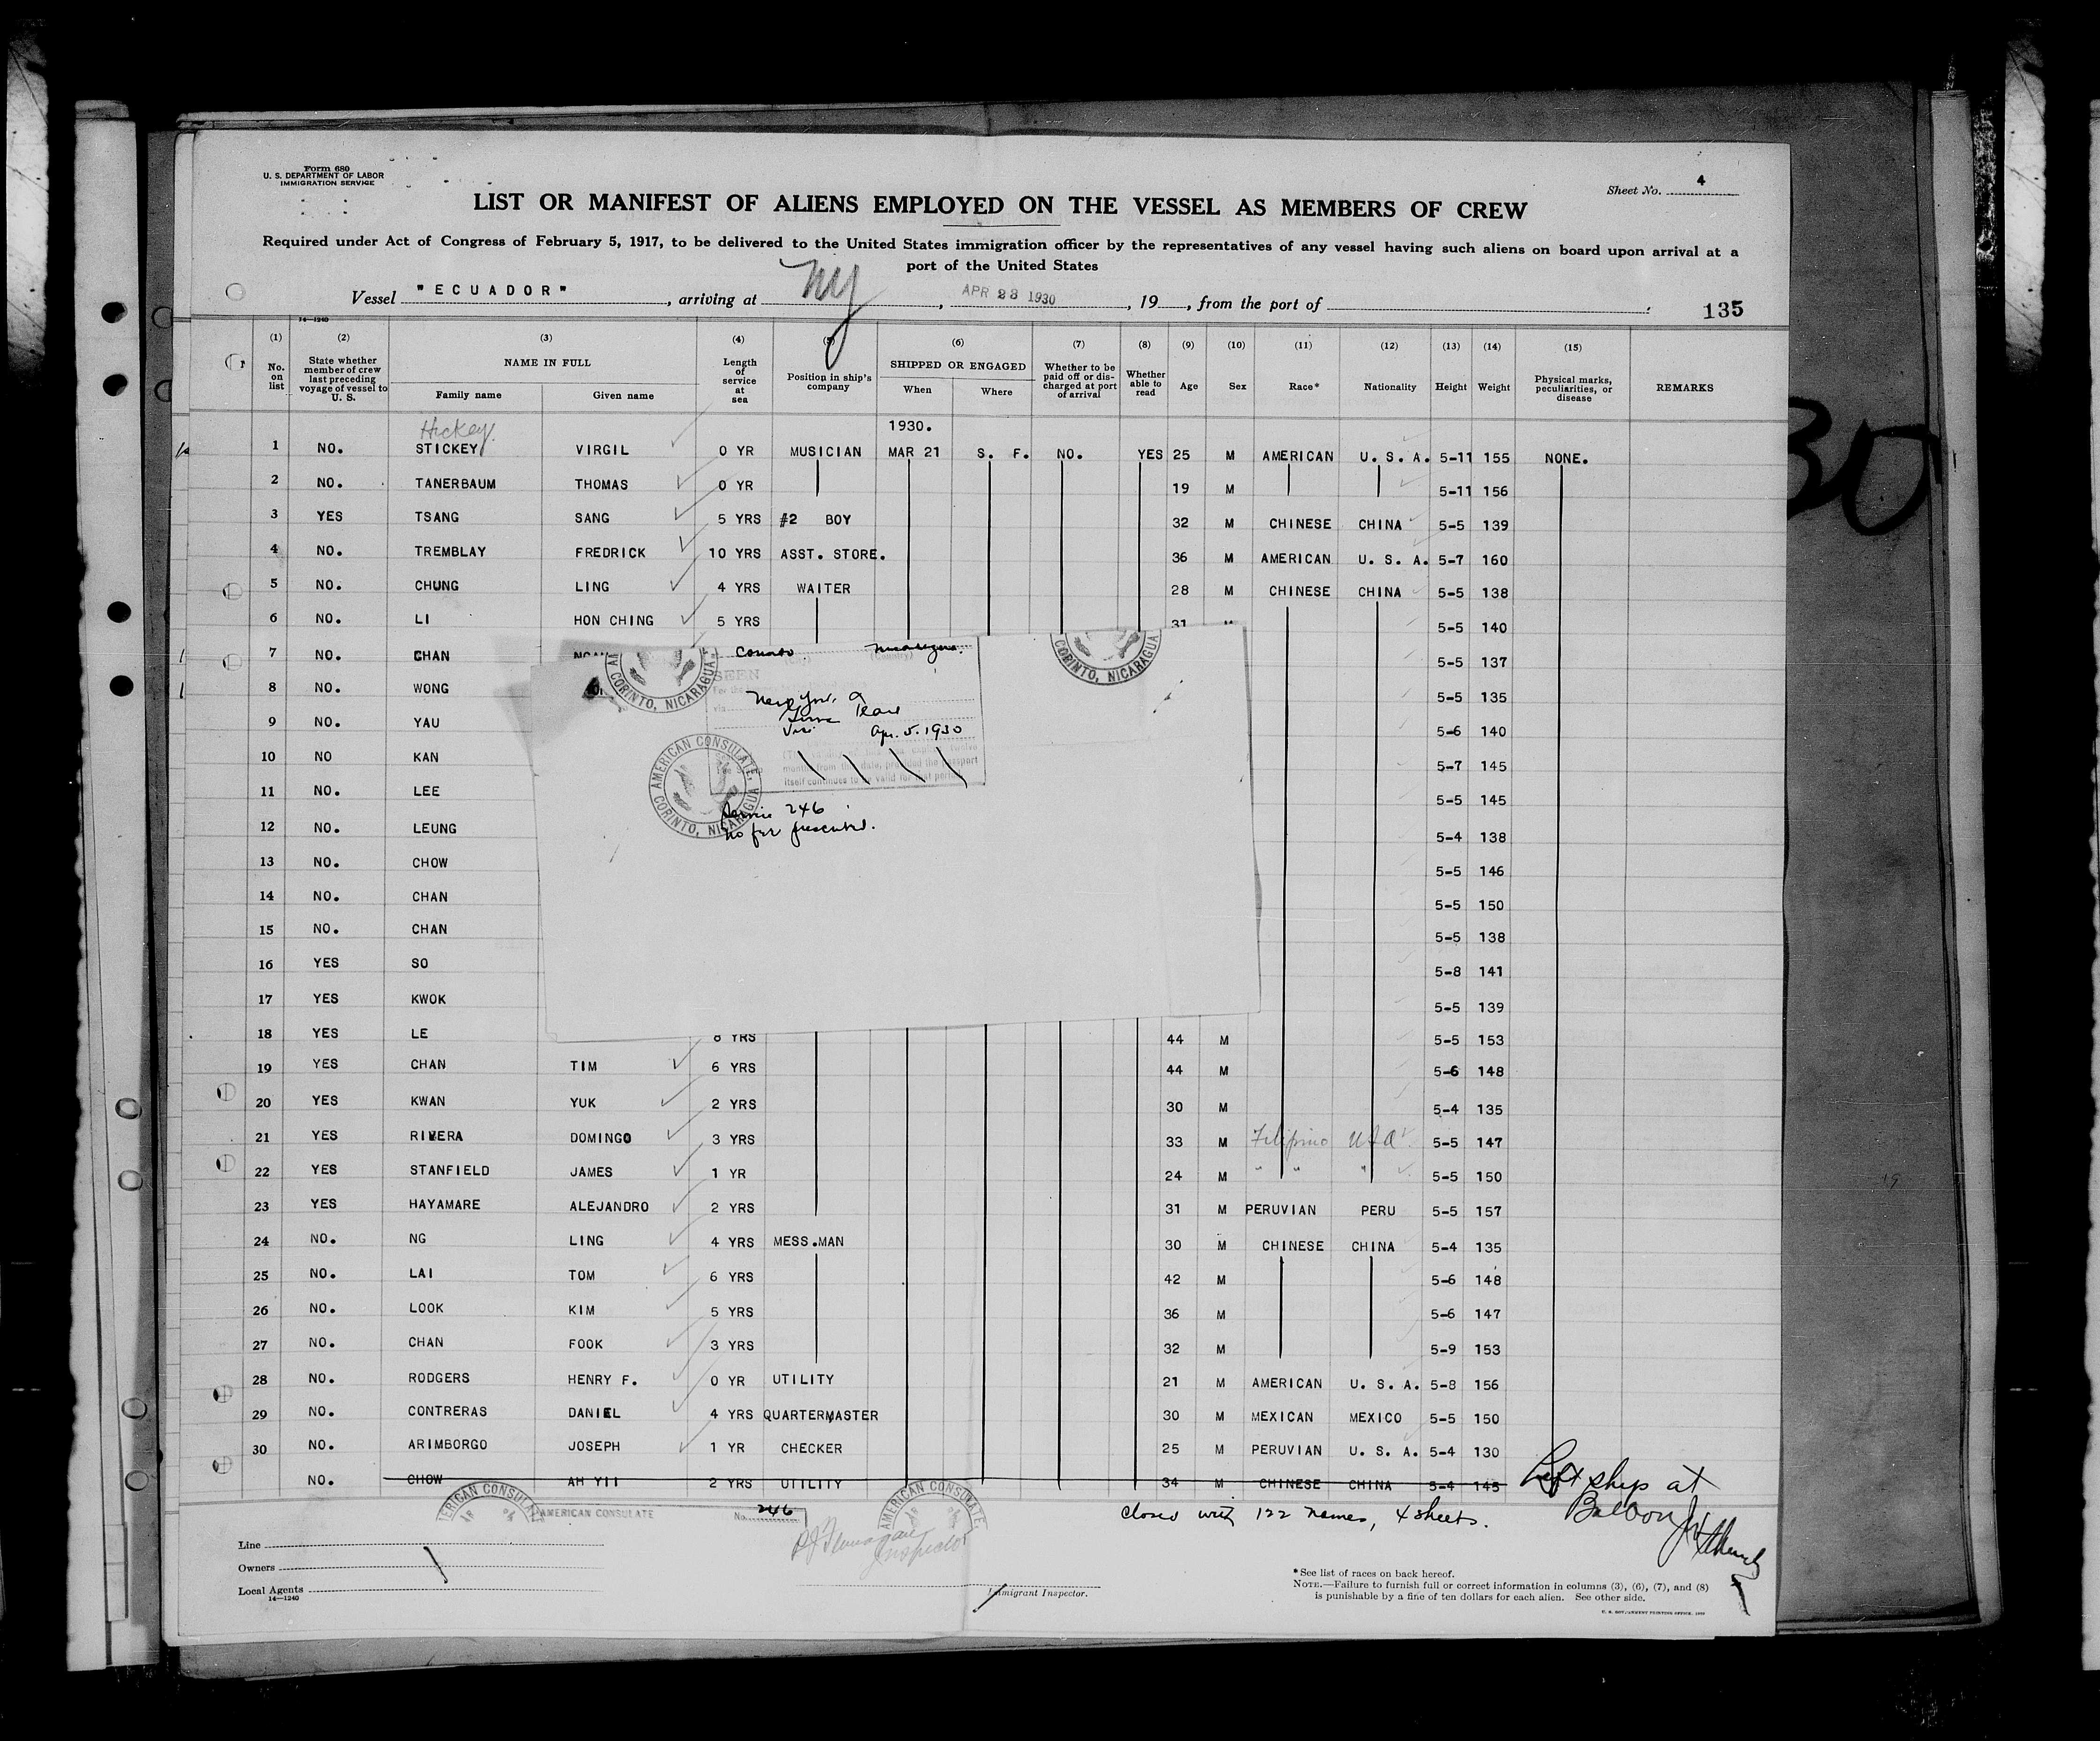 Form 680
U. S. DEPARTMENT OF LABOR
IMMIGRATION SERVICE
Sheet No. 4
LIST OR MANIFEST OF ALIENS EMPLOYED ON THE VESSEL AS MEMBERS OF CREW
Required under Act of Congress of February 5, 1917, to be delivered to the United States immigration officer by the representatives of any vessel having such aliens on board upon arrival at a
port of the United States
Vessel "ECUADOR", arriving at NY, APR 23 1930, 19, from the port of
135
14—1240
(1) (2) (3) (4) (5) (6) (7) (8) (9) (10) (11) (12) (13) (14) (15)
No. on list State whether member of crew last preceding voyage of vessel to U. S. NAME IN FULL Family name Given name Length of service at sea Position in ship's company SHIPPED OR ENGAGED When Where Whether to be paid off or discharged at port of arrival Whether able to read Age Sex Race* Nationality Height Weight Physical marks, peculiarities, or disease REMARKS
Hickey 1930.
1 NO. STICKEY VIRGIL 0 YR MUSICIAN MAR 21 S. F. NO. YES 25 M AMERICAN U. S. A. 5-11 155 NONE.
2 NO. TANERBAUM THOMAS 0 YR 19 M 5-11 156
3 YES TSANG SANG 5 YRS #2 BOY 32 M CHINESE CHINA 5-5 139
4 NO. TREMBLAY FREDRICK 10 YRS ASST. STORE. 36 M AMERICAN U. S. A. 5-7 160
5 NO. CHUNG LING 4 YRS WAITER 28 M CHINESE CHINA 5-5 138
6 NO. LI HON CHING 5 YRS 31 M 5-5 140
7 NO. CHAN 5-5 137
8 NO. WONG 5-5 135
9 NO. YAU 5-6 140
10 NO KAN 5-7 145
11 NO. LEE 5-5 145
12 NO. LEUNG 5-4 138
13 NO. CHOW 5-5 146
14 NO. CHAN 5-5 150
15 NO. CHAN 5-5 138
16 YES SO 5-8 141
17 YES KWOK 5-5 139
18 YES LE YRS 44 M 5-5 153
19 YES CHAN TIM 6 YRS 44 M 5-6 148
20 YES KWAN YUK 2 YRS 30 M 5-4 135
21 YES RIVERA DOMINGO 3 YRS 33 M Filipino USA 5-5 147
22 YES STANFIELD JAMES 1 YR 24 M " " " 5-5 150
23 YES HAYAMARE ALEJANDRO 2 YRS 31 M PERUVIAN PERU 5-5 157
24 NO. NG LING 4 YRS MESS.MAN 30 M CHINESE CHINA 5-4 135
25 NO. LAI TOM 6 YRS 42 M 5-6 148
26 NO. LOOK KIM 5 YRS 36 M 5-6 147
27 NO. CHAN FOOK 3 YRS 32 M 5-9 153
28 NO. RODGERS HENRY F. 0 YR UTILITY 21 M AMERICAN U. S. A. 5-8 156
29 NO. CONTRERAS DANIEL 4 YRS QUARTERMASTER 30 M MEXICAN MEXICO 5-5 150
30 NO. ARIMBORGO JOSEPH 1 YR CHECKER 25 M PERUVIAN U. S. A. 5-4 130
NO. CHOW AH YII 2 YRS UTILITY 34 M CHINESE CHINA 5-4 145
Left ship at
Balboa
CORINTO, NICARAGUA
CORINTO, NICARAGUA
SEEN
New York
Apr. 5. 1930
months from this date, provided the passport
itself continues to be valid for that period
AMERICAN CONSULATE, CORINTO, NICARAGUA
Service 246
No fee prescribed.
AMERICAN CONSULATE
AMERICAN CONSULATE
No. 246
AMERICAN CONSULATE
closed with 122 names, 4 sheets.
Inspector
Line
Owners
Local Agents
14—1240
Immigrant Inspector.
*See list of races on back hereof.
NOTE.—Failure to furnish full or correct information in columns (3), (6), (7), and (8)
is punishable by a fine of ten dollars for each alien. See other side.
30